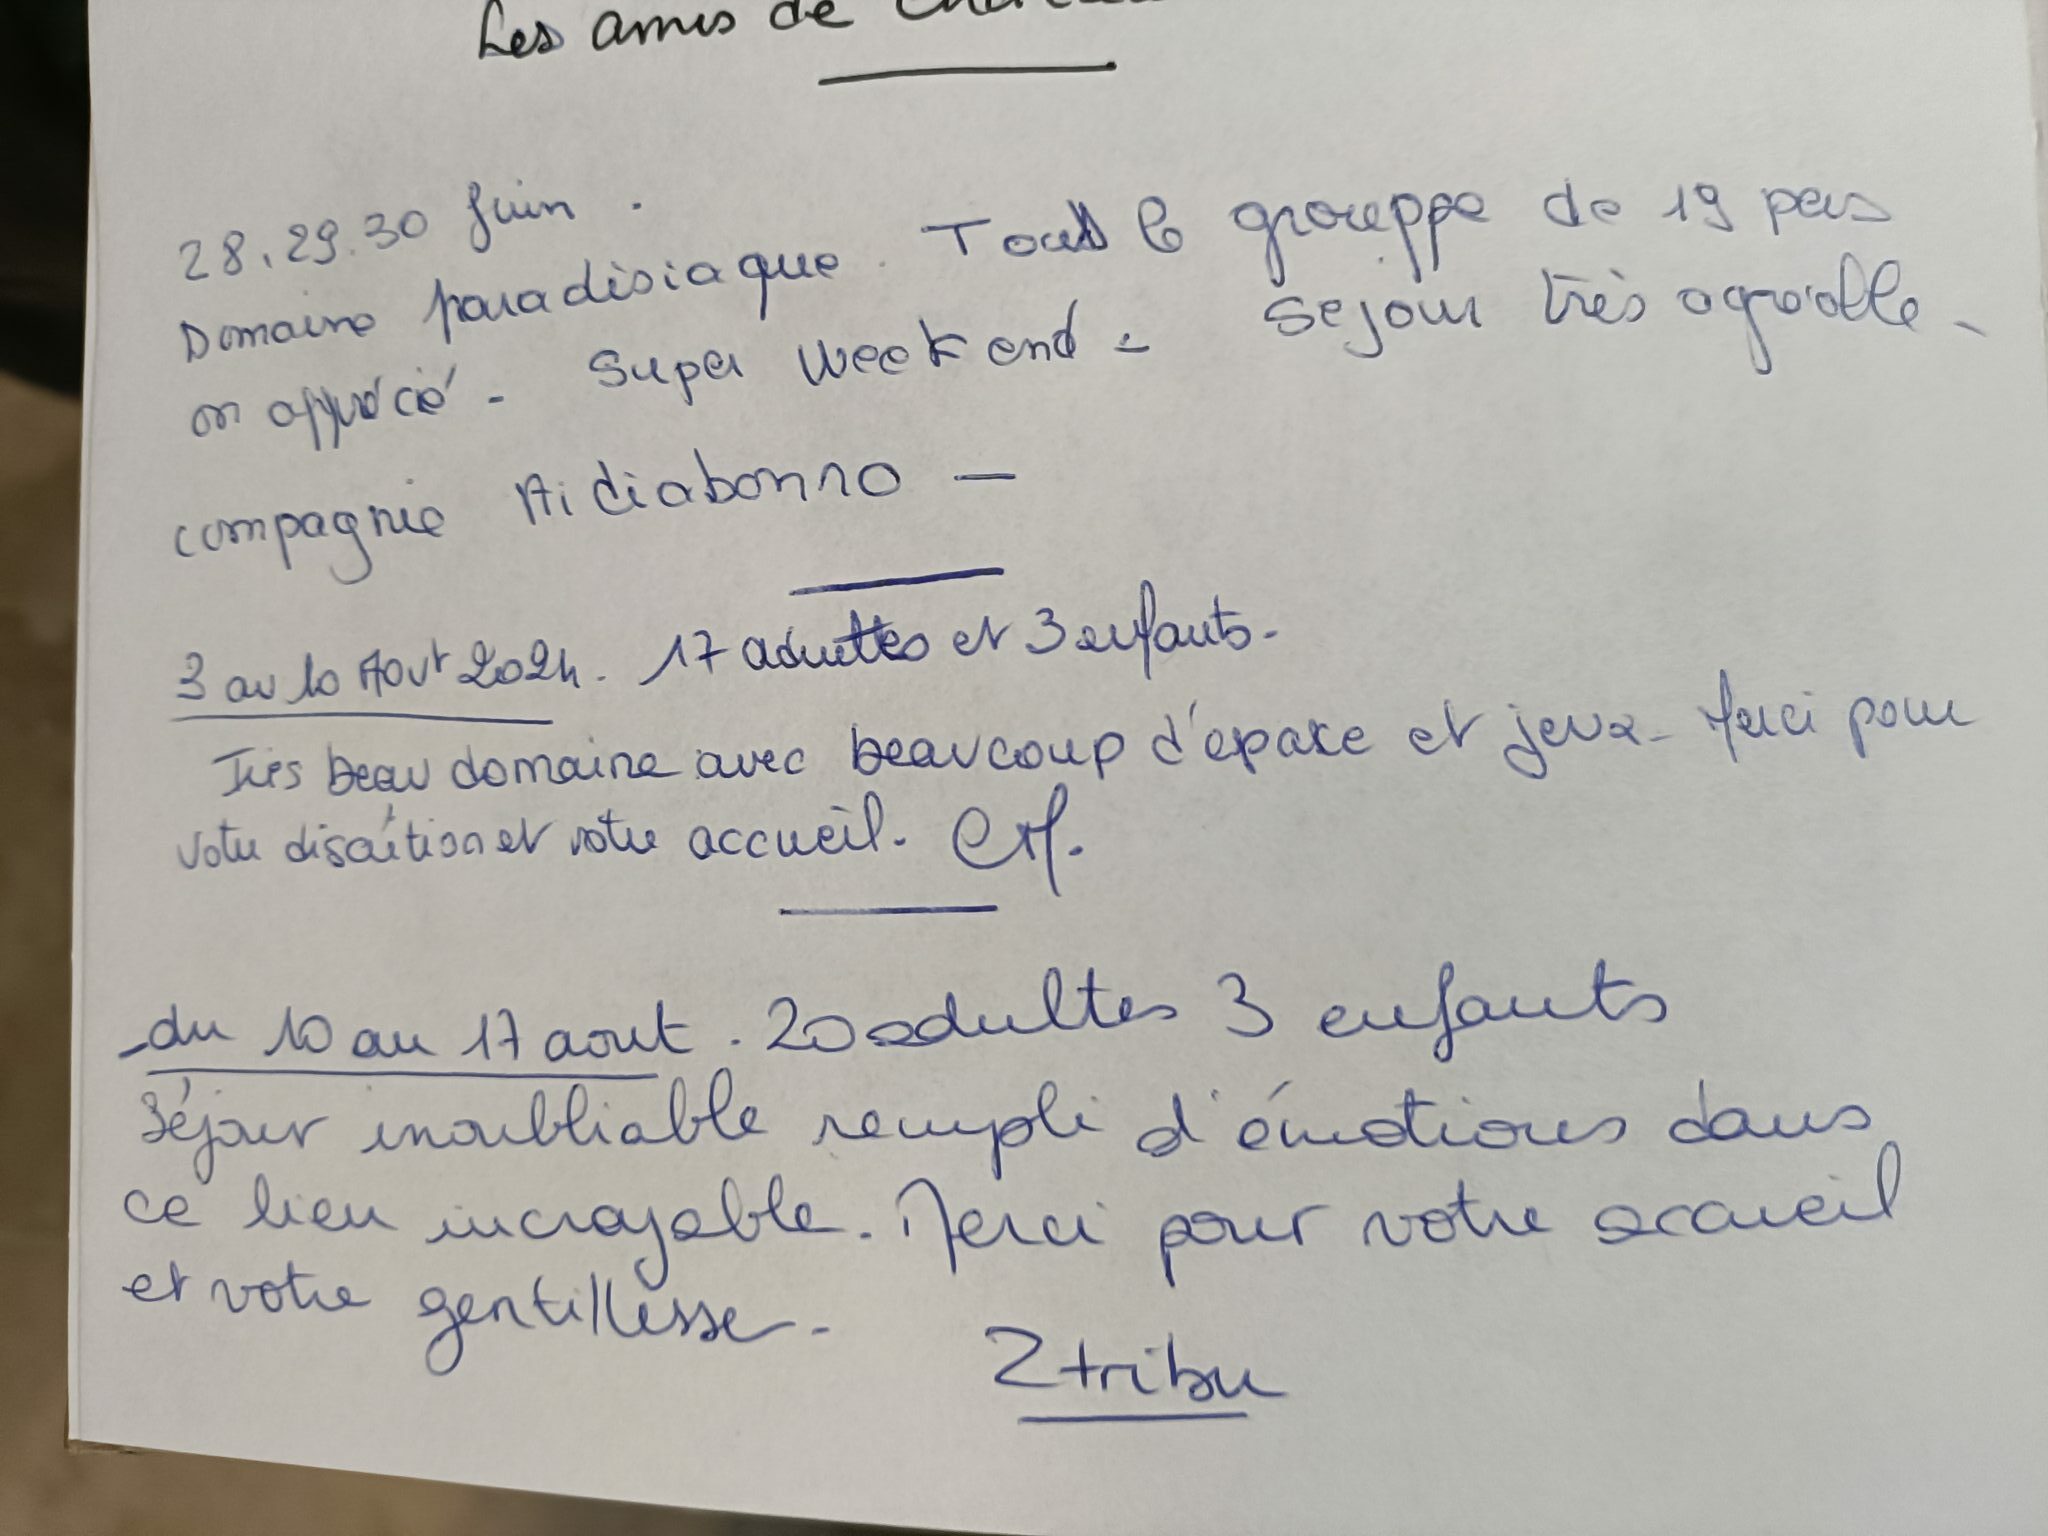 Les amis de
28.29.30 Juin.
Domaine paradisiaque. Tout le grouppe de 19 pers
on apprécié - Super Week end - Sejour très agréable -
compagnie Aidiabonno -
3 au 10 Août 2024. 17 adultes et 3 enfants -
Très beau domaine avec beaucoup d'epace et jeux - Merci pour
votre discrétion et votre accueil. CM.
- du 10 au 17 aout. 20 adultes 3 enfants
Séjour inoubliable rempli d'émotions dans
ce lieu incroyable. Merci pour votre accueil
et votre gentillesse -
Ztribu